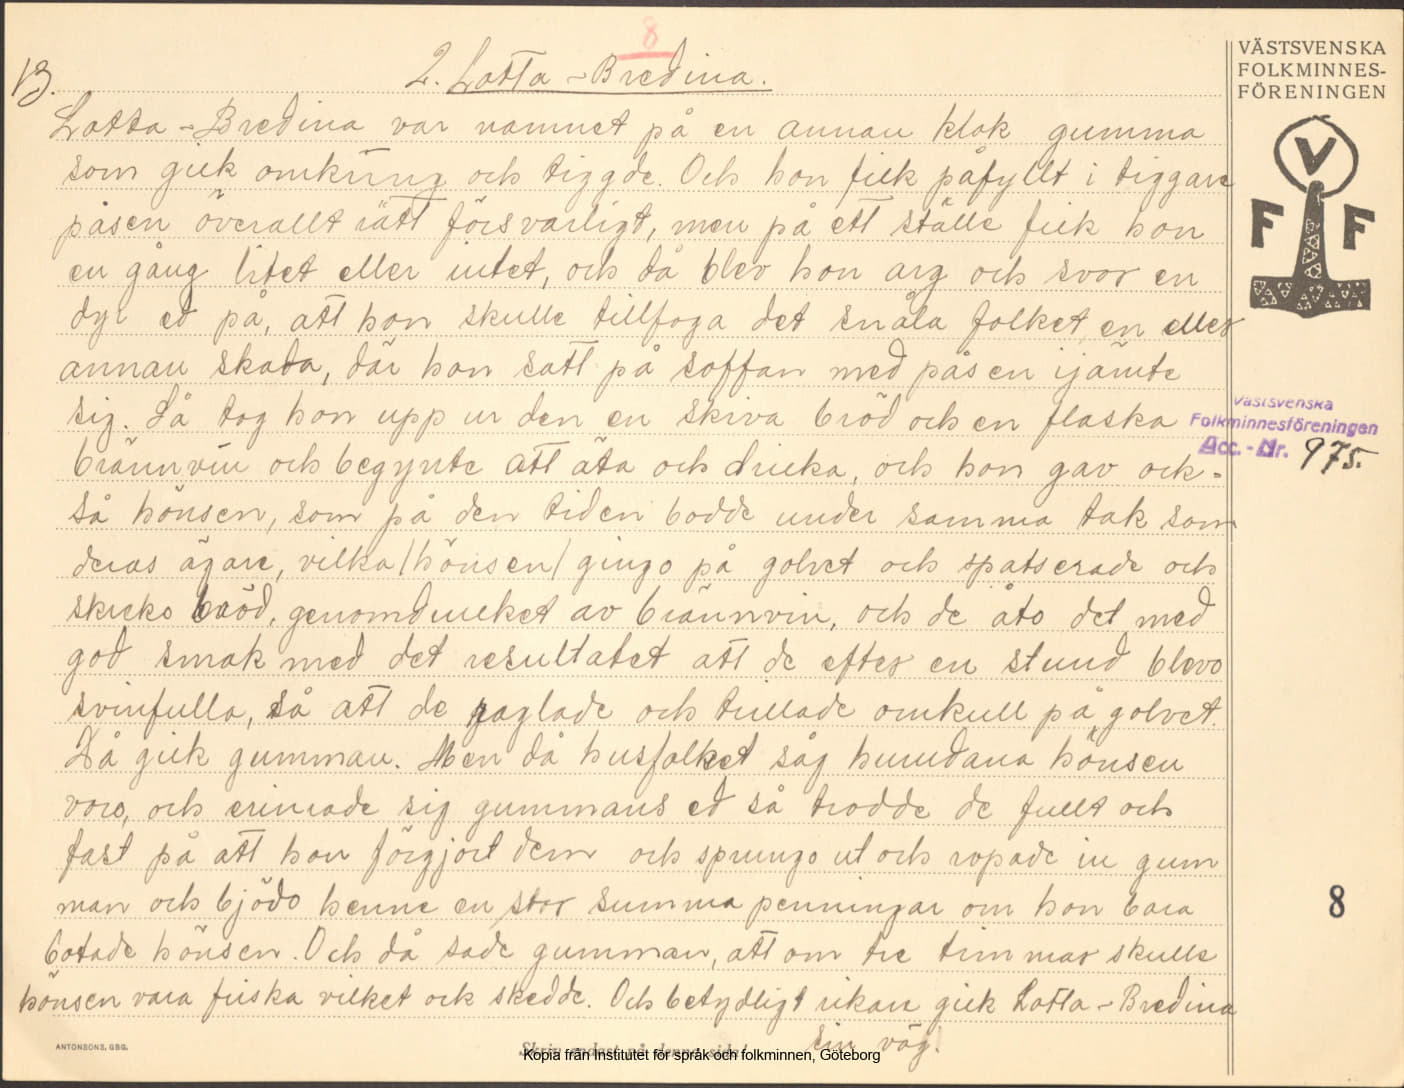 8
13.
2. Lotta-Bredina.
VÄSTSVENSKA
FOLKMINNES-
FÖRENINGEN
V
F F
Lotta-Bredina var namnet på en annan klok gumma
som gick omkring och tiggde. Och hon fick påfyllt i tiggare
påsen överallt rätt försvarligt, men på ett ställe fick hon
en gång litet eller intet, och då blev hon arg och svor en
dyr ed på, att hon skulle tillfoga det snåla folket en eller
annan skada, där hon satt på soffan med påsen ijämte
sig. Så tog hon upp ur den en skiva bröd och en flaska
brännvin och begynte att äta och dricka, och hon gav ock-
så hönsen, som på den tiden bodde under samma tak som
deras ägare, vilka /hönsen/ gingo på golvet och spatserade och
skreko bröd, genomdrucket av brännvin, och de åto det med
god smak med det resultatet att de efter en stund blevo
svinfulla, så att de raglade och trillade omkull på golvet.
Då gick gumman. Men då husfolket såg hurudana hönsen
voro, och erinrade sig gummans ed så trodde de fullt och
fast på att hon förgjort dem och sprungo ut och ropade in gum
man och bjödo henne en stor summa penningar om hon bara
botade hönsen. Och då sade gumman, att om tre timmar skulle
hönsen vara friska vilket ock skedde. Och betydligt rikare gick Lotta-Bredina
sin väg.
Västsvenska
Folkminnesföreningen
Acc.-Nr. 975.
8
ANTONSONS, GBG.
Skriv endast på denna sida!
Kopia från Institutet för språk och folkminnen, Göteborg